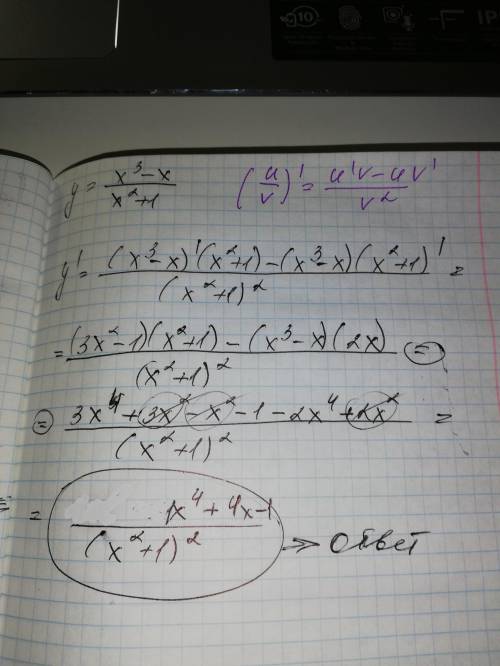 10 -F IP
y = (x³-x)/(x²+1) (u/v)' = (u'v-uv')/v²
y' = ((x³-x)'(x²+1)-(x³-x)(x²+1)')/(x²+1)² =
= ((3x²-1)(x²+1)-(x³-x)(2x))/(x²+1)² =
= (3x⁴+3x²-x²-1-2x⁴+2x²)/(x²+1)² =
= (1x⁴+4x-1)/(x²+1)² => ответ